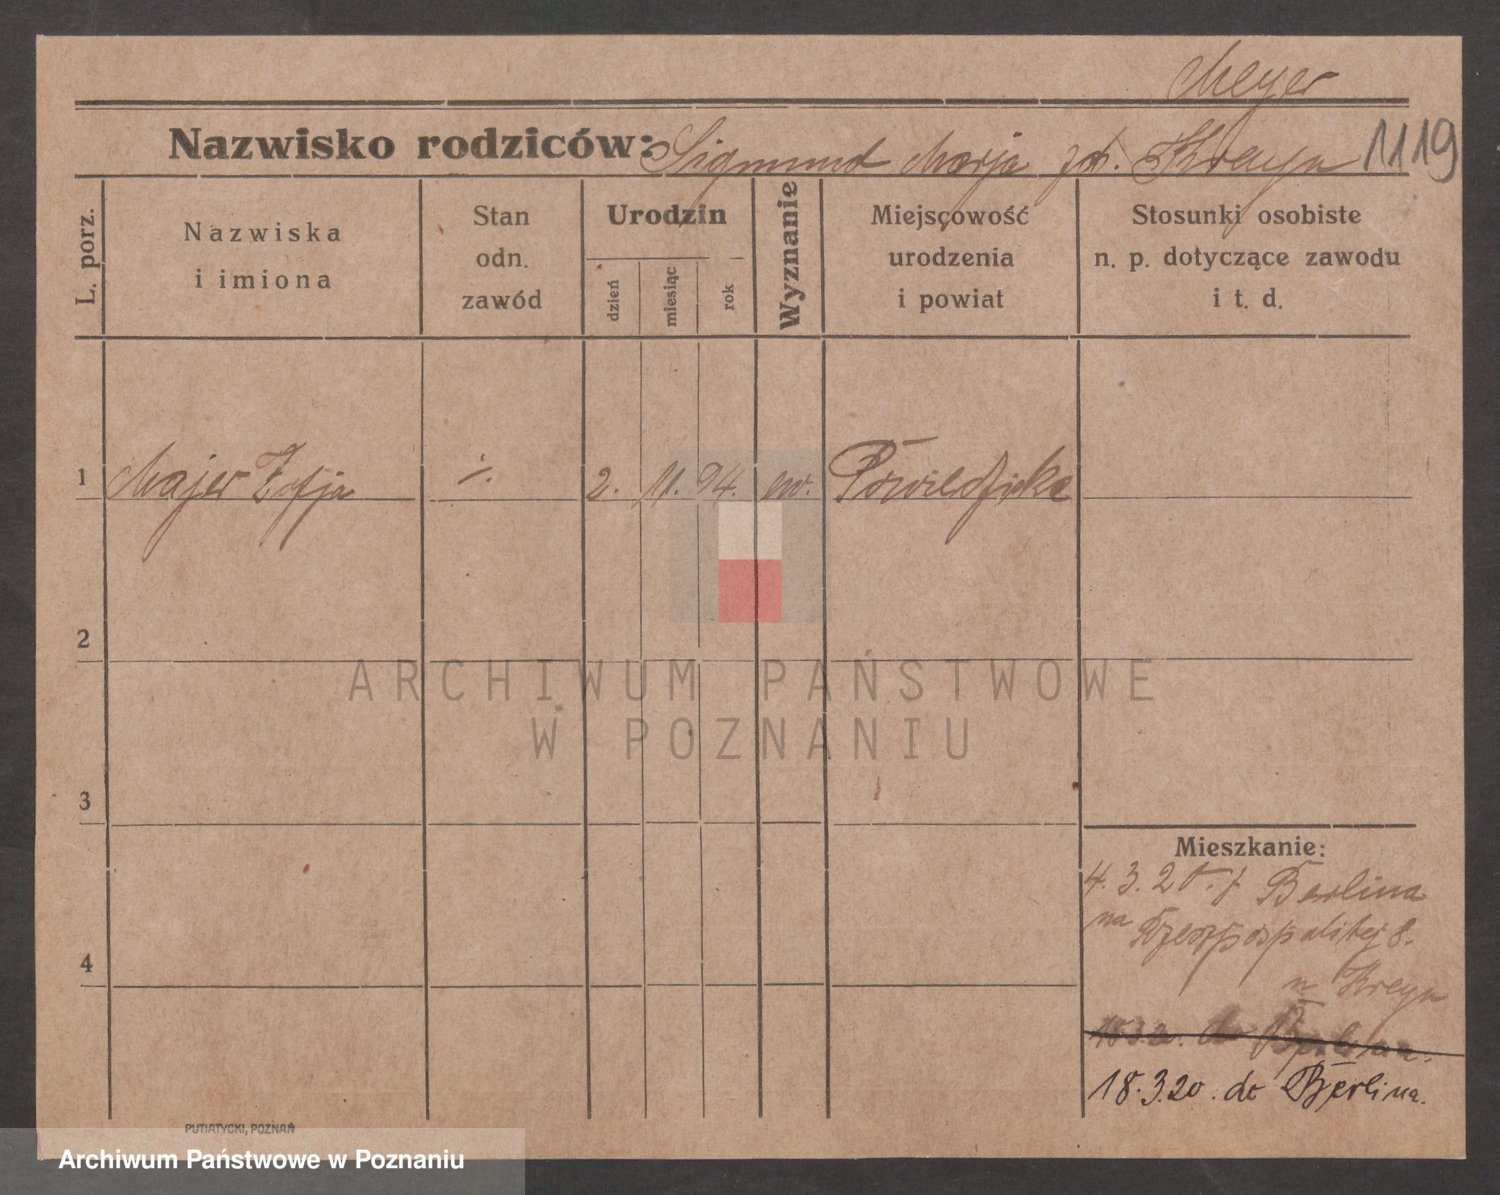 Meyer
Nazwisko rodziców: Sigmund Marja
1119
L. porz.
Nazwiska
i imiona
Stan
odn.
zawód
Urodzin
dzień
miesiąc
rok
Wyznanie
Miejscowość
urodzenia
i powiat
Stosunki osobiste
n. p. dotyczące zawodu
i t. d.
1
Majer Zofja
·/.
2. 11. 94.
ew.
2
ARCHIWUM PAŃSTWOWE
W POZNANIU
3
Mieszkanie:
4. 3. 20. z Berlina
na Rzeszpospolitej 8.
4
18.3.20. do Berlina.
18.3.20. do Berlina.
PUTIATYCKI, POZNAŃ
Archiwum Państwowe w Poznaniu